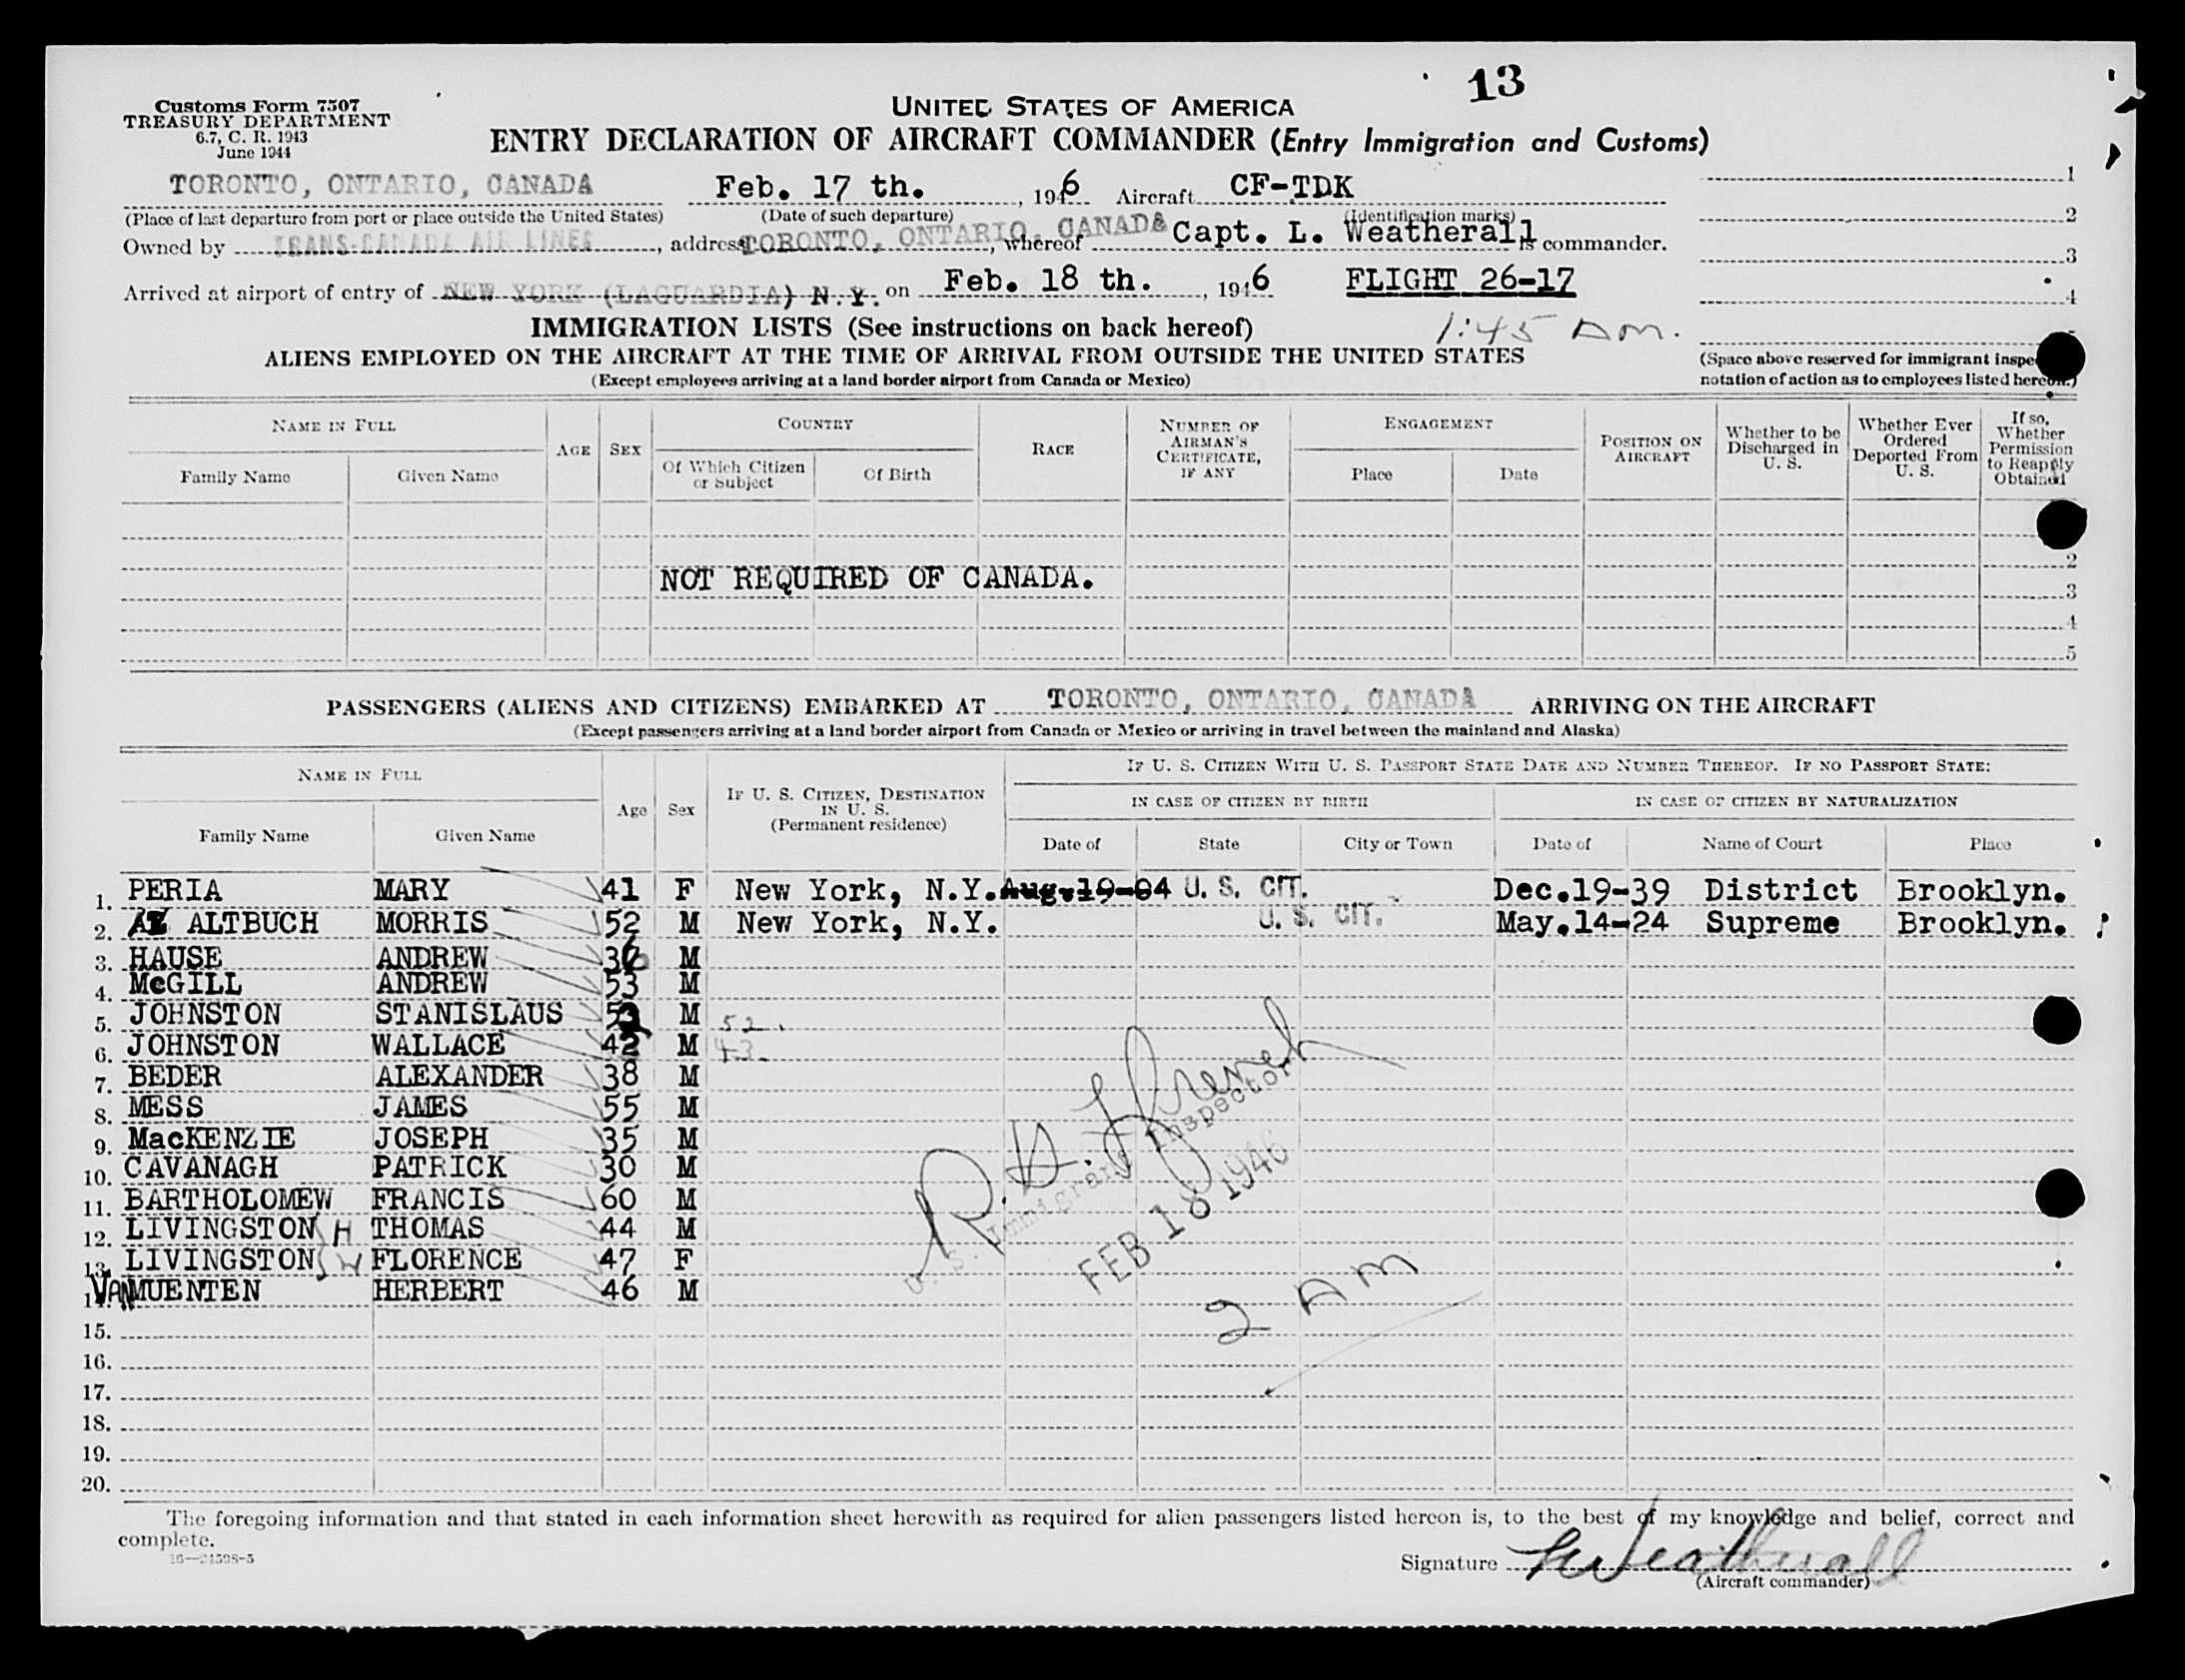 13
Customs Form 7507
TREASURY DEPARTMENT
6.7, C. R. 1943
June 1944
UNITED STATES OF AMERICA
ENTRY DECLARATION OF AIRCRAFT COMMANDER (Entry Immigration and Customs)
TORONTO, ONTARIO, CANADA Feb. 17 th. , 1946 Aircraft CF-TDK
(Place of last departure from port or place outside the United States) (Date of such departure) (Identification marks)
Owned by TRANS-CANADA AIR LINES , address TORONTO, ONTARIO, CANADA , whereof Capt. L. Weatherall is commander.
Arrived at airport of entry of NEW YORK (LAGUARDIA) N.Y. on Feb. 18 th. , 1946 FLIGHT 26-17
1
2
3
4
IMMIGRATION LISTS (See instructions on back hereof) 1:45 Am.
ALIENS EMPLOYED ON THE AIRCRAFT AT THE TIME OF ARRIVAL FROM OUTSIDE THE UNITED STATES
(Except employees arriving at a land border airport from Canada or Mexico)
(Space above reserved for immigrant inspe
notation of action as to employees listed hereon.)
NAME IN FULL
Family Name Given Name
AGE SEX
COUNTRY
Of Which Citizen or Subject Of Birth
RACE
NUMBER OF AIRMAN'S CERTIFICATE, IF ANY
ENGAGEMENT
Place Date
POSITION ON AIRCRAFT
Whether to be Discharged in U. S.
Whether Ever Ordered Deported From U. S.
If so, Whether Permission to Reapply Obtained
NOT REQUIRED OF CANADA.
2
3
4
5
PASSENGERS (ALIENS AND CITIZENS) EMBARKED AT TORONTO, ONTARIO, CANADA ARRIVING ON THE AIRCRAFT
(Except passengers arriving at a land border airport from Canada or Mexico or arriving in travel between the mainland and Alaska)
NAME IN FULL
Family Name Given Name
Age Sex
IF U. S. CITIZEN, DESTINATION IN U. S. (Permanent residence)
IF U. S. CITIZEN WITH U. S. PASSPORT STATE DATE AND NUMBER THEREOF. IF NO PASSPORT STATE:
IN CASE OF CITIZEN BY BIRTH IN CASE OF CITIZEN BY NATURALIZATION
Date of State City or Town Date of Name of Court Place
1. PERIA MARY 41 F New York, N.Y. Aug.19-04 U. S. CIT. Dec.19-39 District Brooklyn.
2. ALTBUCH MORRIS 52 M New York, N.Y. U. S. CIT. May.14-24 Supreme Brooklyn.
3. HAUSE ANDREW 36 M
4. McGILL ANDREW 53 M
5. JOHNSTON STANISLAUS 52 M 52.
6. JOHNSTON WALLACE 43 M 43.
7. BEDER ALEXANDER 38 M
8. MESS JAMES 55 M
9. MacKENZIE JOSEPH 35 M
10. CAVANAGH PATRICK 30 M
11. BARTHOLOMEW FRANCIS 60 M
12. LIVINGSTON H THOMAS 44 M
13. LIVINGSTON W FLORENCE 47 F
VAN MUENTEN HERBERT 46 M
15.
16.
17.
18.
19.
20.
U. S. Immigrant Inspector
FEB 18 1946
2 AM
The foregoing information and that stated in each information sheet herewith as required for alien passengers listed hereon is, to the best of my knowledge and belief, correct and
complete.
16—24598-5
Signature L Weatherall
(Aircraft commander)